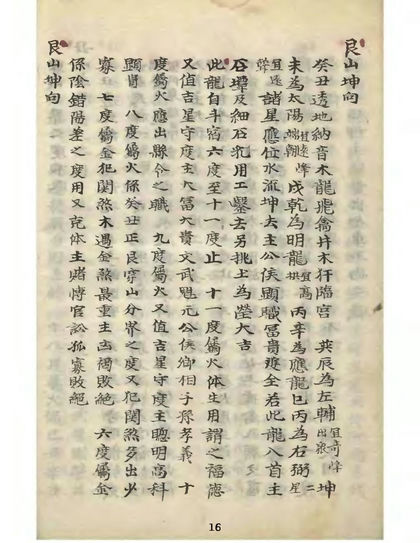 艮山坤向
癸丑透地納音木龍飛禽井木犴臨宮 巽辰為左輔宜奇峰出衆坤
未為太陽宜遠峰端朝戌乾為明龍宜高拱丙辛為應龍巳丙為右弼二星
宜遠聳諸星應位水流坤去主公侯顯職冨貴雙全若此龍入首主
石墰及細石乳用工鑿去另挑土為塋大吉
此龍自斗宿六度至十一度止 十一度屬火体生用謂之福德
又值吉星守度主大冨大貴文武魁元公侯卿相子孫孝義 十
度屬火應出縣令之職 九度屬火又值吉星守度主聰明高科
顯冑 八度屬火係癸丑正艮穿山分界之度又犯関煞多出少
寡 七度屬金犯関煞木遇金煞最重主凶禍敗絕 六度屬金
係陰錯陽差之度用又克体主賭悖官訟孤寡敗絕
艮山坤向
16